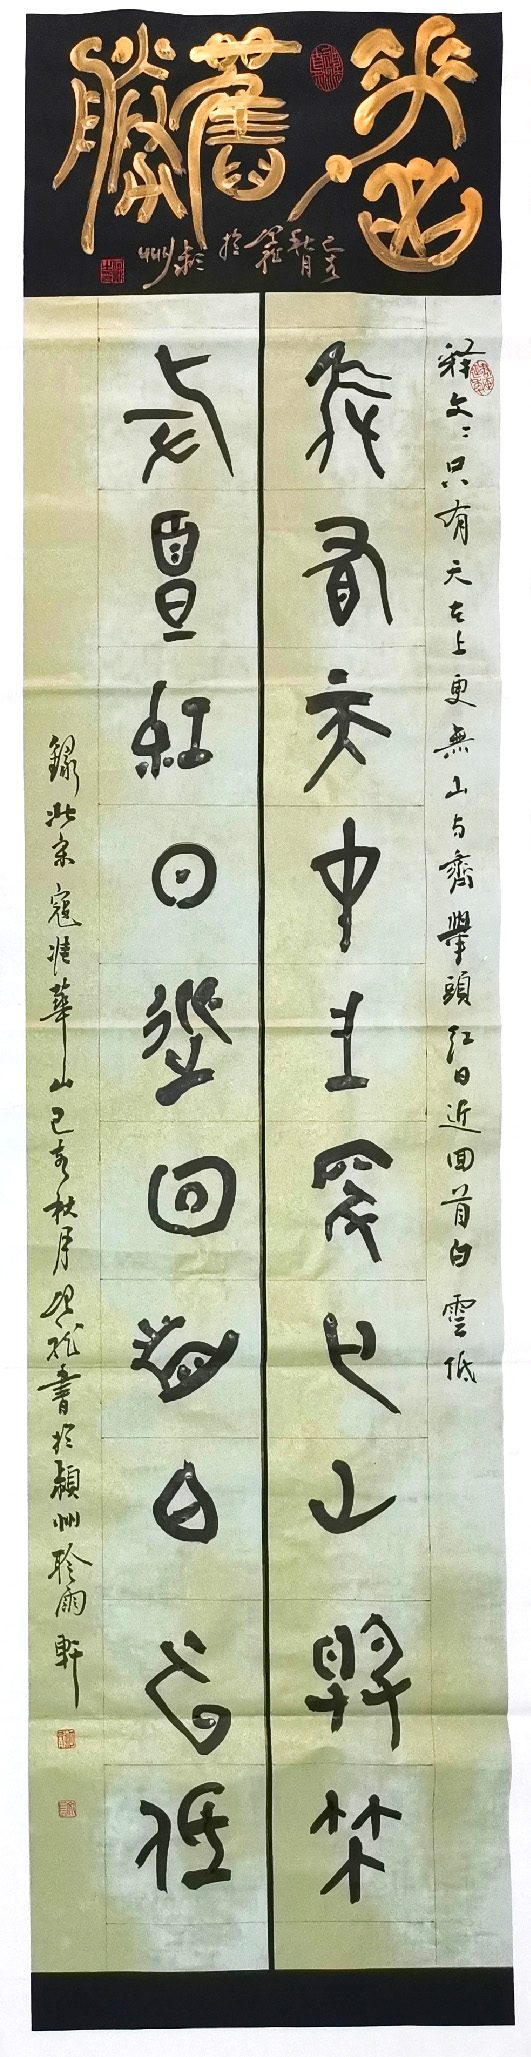 释文：只有天在上更無山与齊舉頭紅日近回首白雲低
只有天在上更無山與齊
舉頭紅日近回首白雲低
録北宋寇准華山己亥秋月書於潁州聆雨軒
己亥秋月於潁州